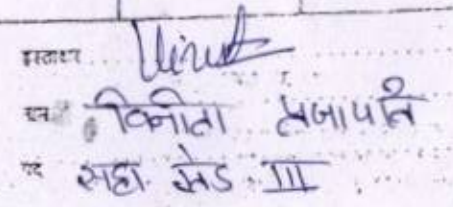 हस्ताक्षर Vinita
नाम विनीता प्रजापति
पद सहा. ग्रेड III